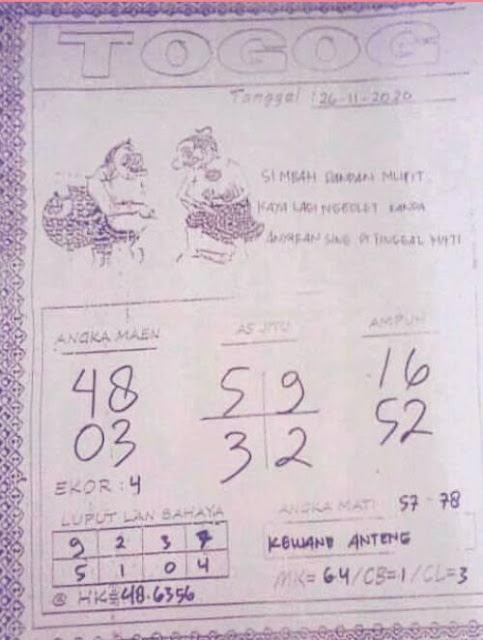 TOGOG
Tanggal : 26-11-2020
SIMBAH DANDAN MLIPIT
KAYA LAGI NGGOLET RANDA
SING DI TINGGAL MATI
ANGKA MAEN
48
03
EKOR : 4
AS JITU
5 9
3 2
AMPUH
16
52
LUPUT LAN BAHAYA
9 2 3 7
5 1 0 4
@ HK= 48.6356
ANGKA MATI 57 - 78
KEWANE ANTENG
MK= 64/CB=1/CL=3